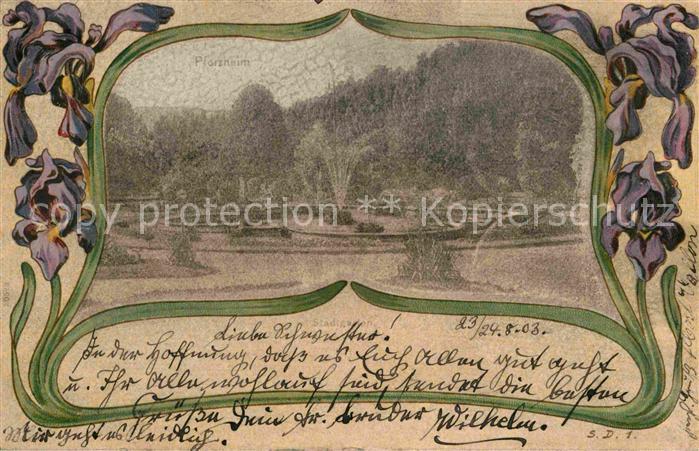 Pforzheim
copy protection ** Kopierschutz
Stadtga
Liebe Schwester! 23/24.8.03.
In der Hoffnung, daß es Euch Allen gut geht
u. Ihr Alle wohlauf seid, sendet die besten
Grüße Dein tr. Bruder Wilhelm.
Mir geht es leidlich.
S. D. 1.